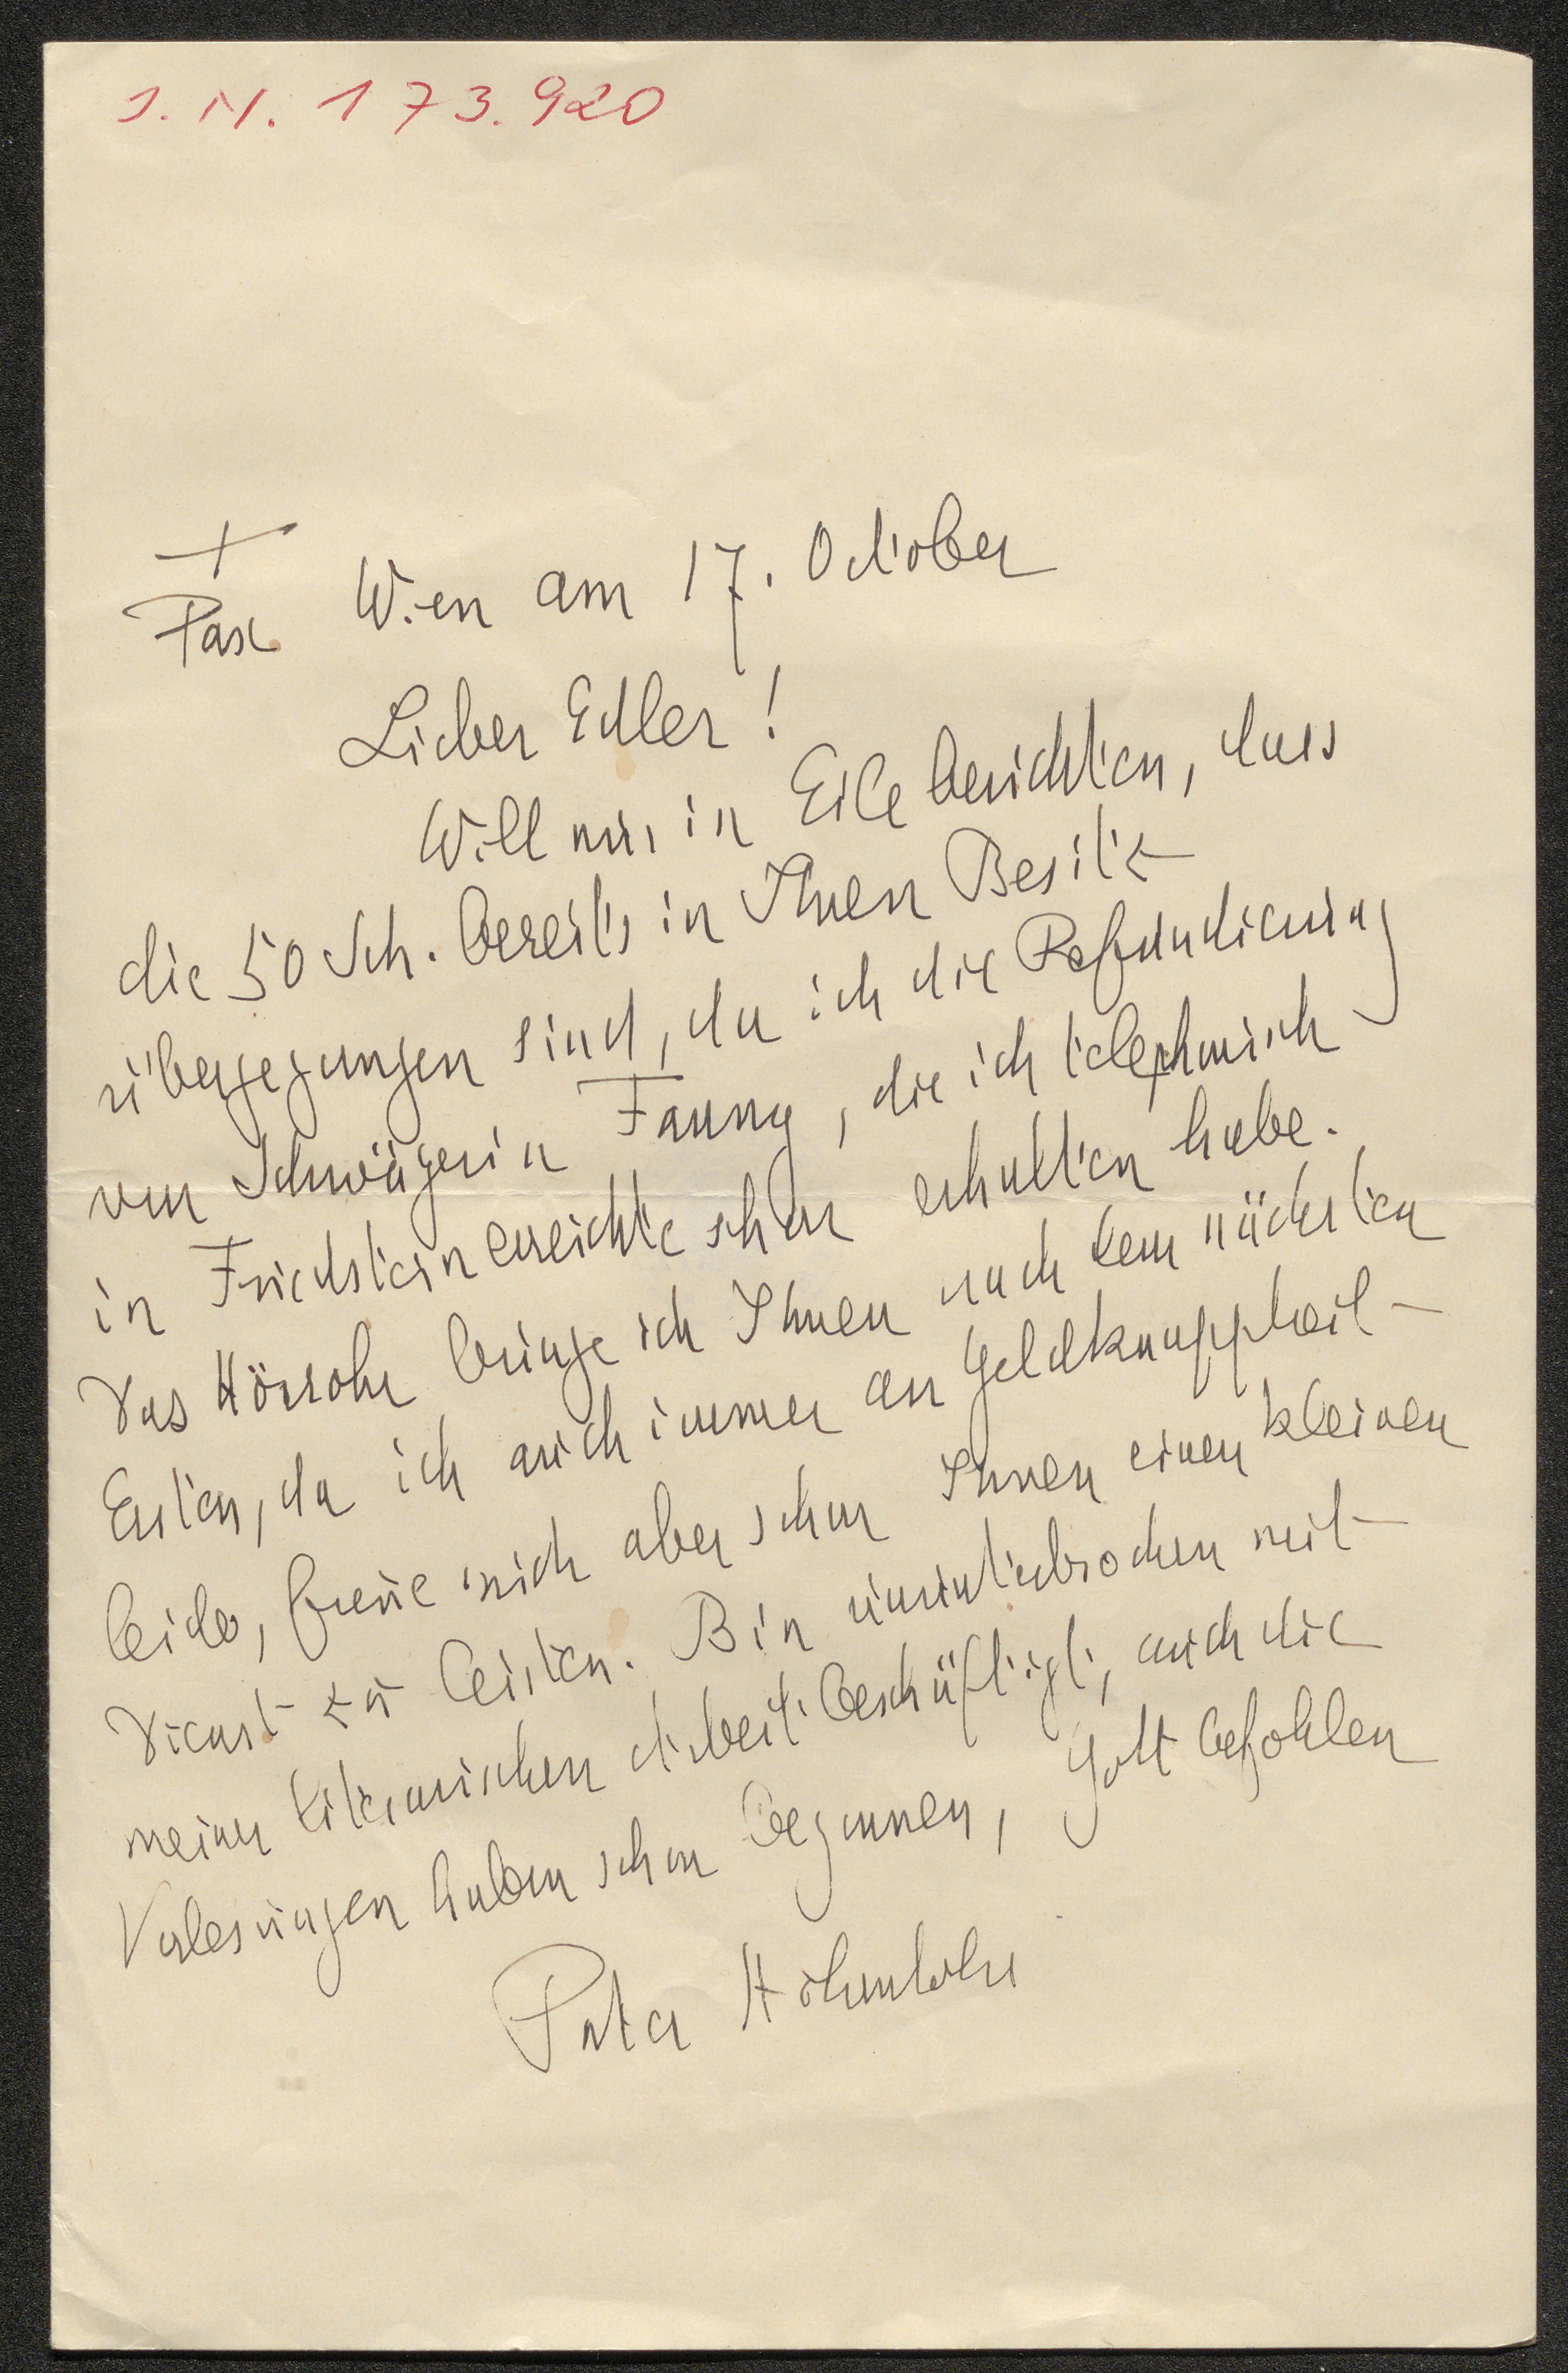 J.N. 173.920
+
Pax. Wien am 17. October
Lieber Edler!
Will nur in Eile berichten, dass
die 50 Sch. bereits in Ihren Besitz
übergegangen sind, da ich die Refundierung
von Schwägerin Fanny, die ich telephonisch
in Friedstein erreichte schon erhalten habe.
Das Hörrohr bringe ich Ihnen nach dem nächsten
Ersten, da ich auch immer an Geldknappheit
leide, freue mich aber schon Ihnen einen kleinen
Dienst zu leisten. Bin ununterbrochen mit
meiner literarischen Arbeit beschäftigt, auch die
Vorlesungen haben schon begonnen, Gott befohlen
Pater Hohenlohe